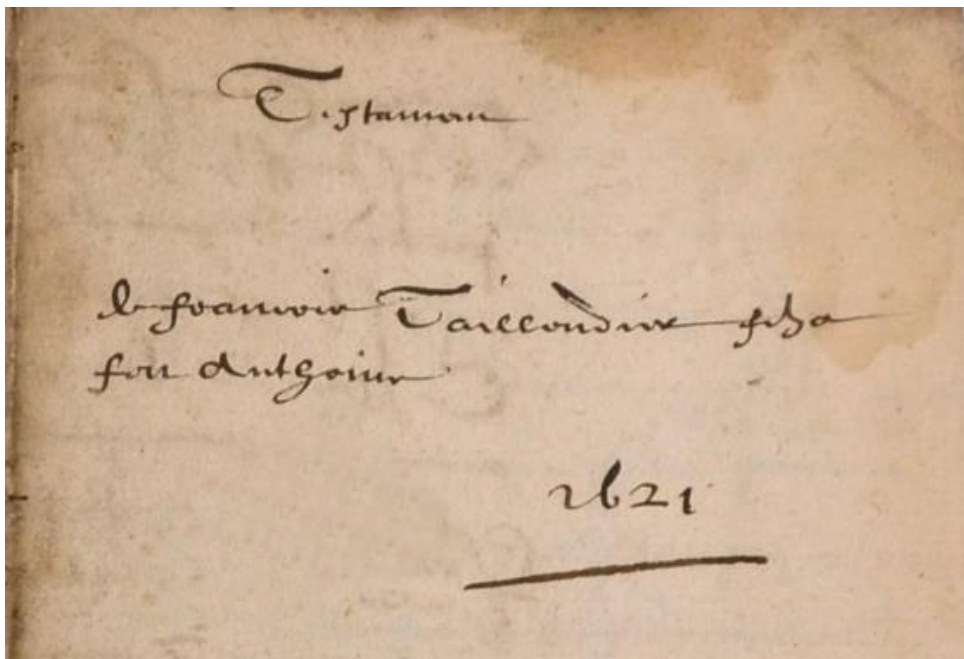 Testamen
de francois Taillandier filz a
feu Anthoine
1621